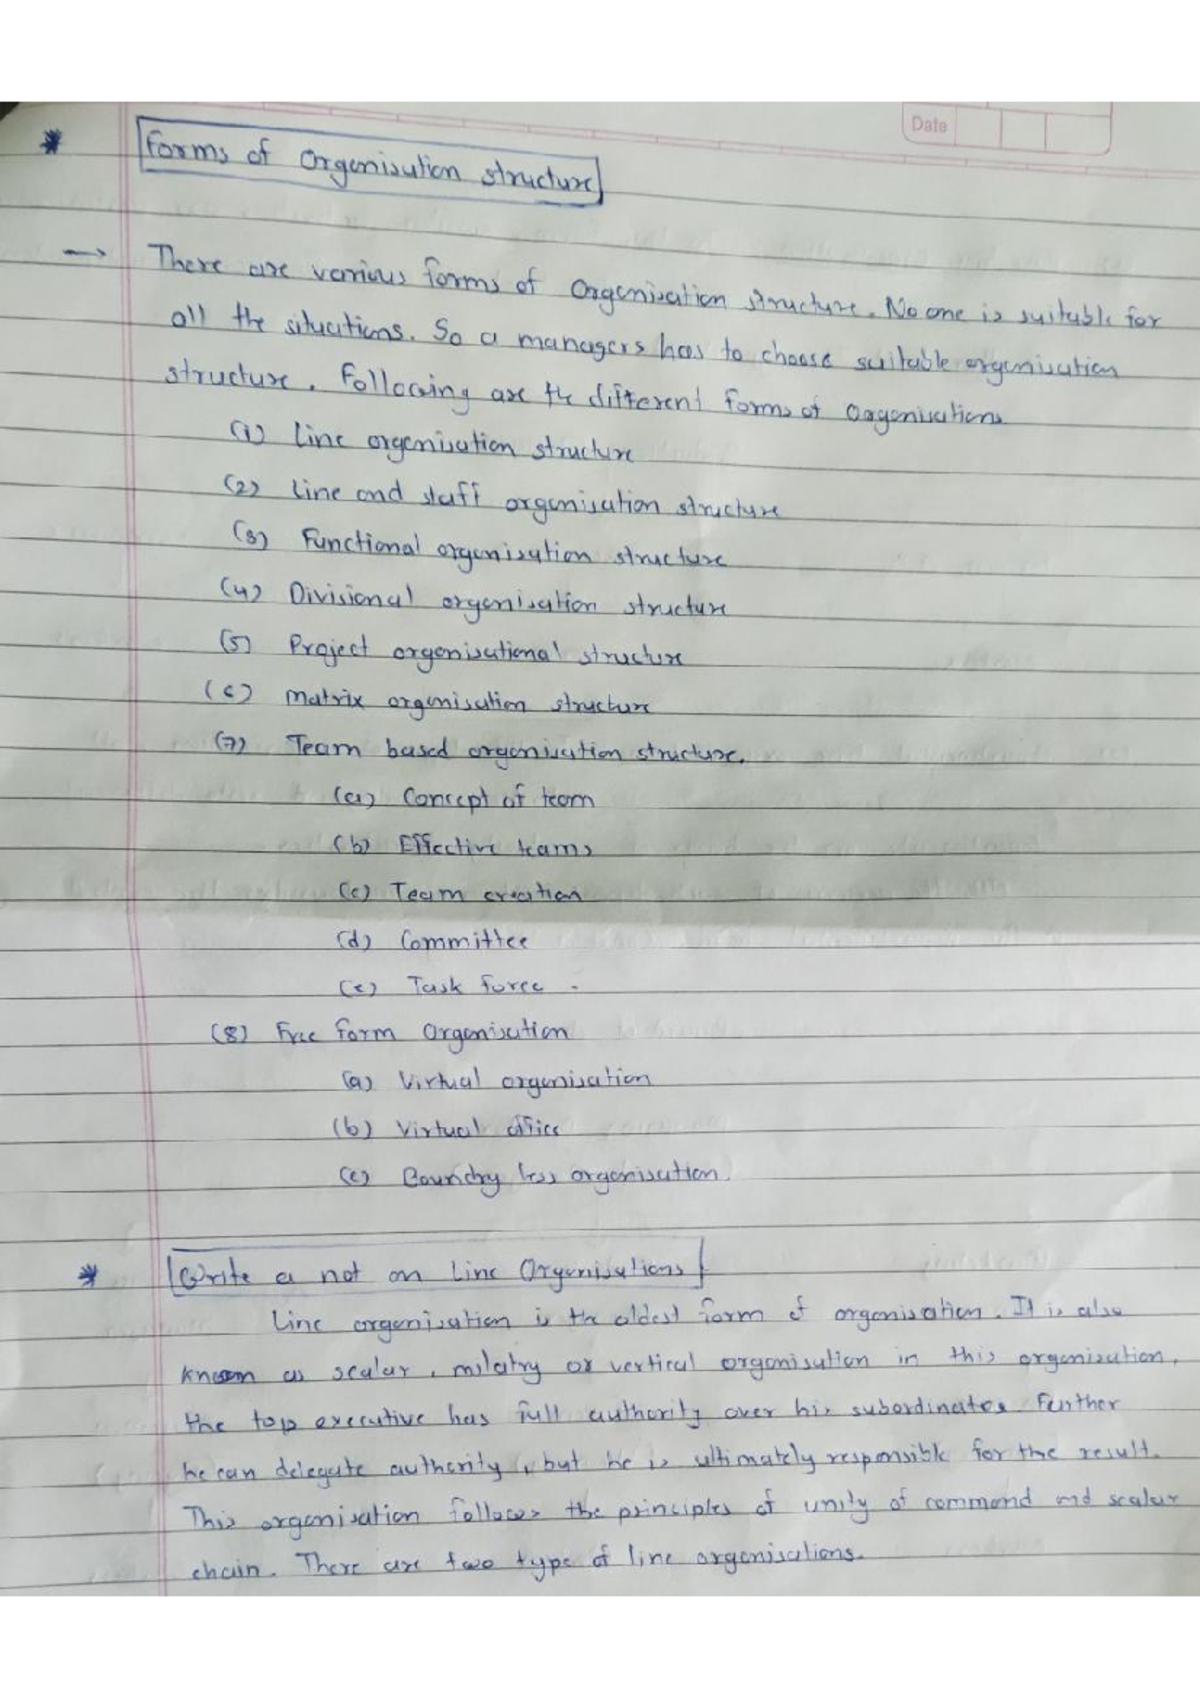 Date
* Forms of Organisation structure
→ There are various forms of Organisation structure. No one is suitable for
all the situations. So a managers has to choose suitable organisation
structure. Following are the different forms of Organisations
(1) Line organisation structure
(2) Line and staff organisation structure
(3) Functional organisation structure
(4) Divisional organisation structure
(5) Project organisational structure
(6) Matrix organisation structure
(7) Team based organisation structure.
(a) Concept of team
(b) Effective teams
(c) Team creation
(d) Committee
(e) Task force .
(8) Free form Organisation
(a) Virtual organisation
(b) Virtual office
(c) Boundry less organisation.
* Write a not on Line Organisations
Line organisation is the oldest form of organisation. It is also
known as scalar, milatry or vertical organisation in this organisation,
the top executive has full authority over his subordinates. Further
he can delegate authority, but he is ultimately responsible for the result.
This organisation follows the principles of unity of command and scalar
chain. There are two type of line organisations.